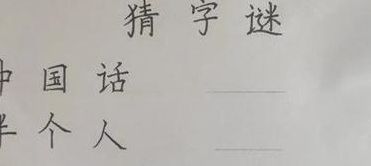 猜字谜
中国话
半个人